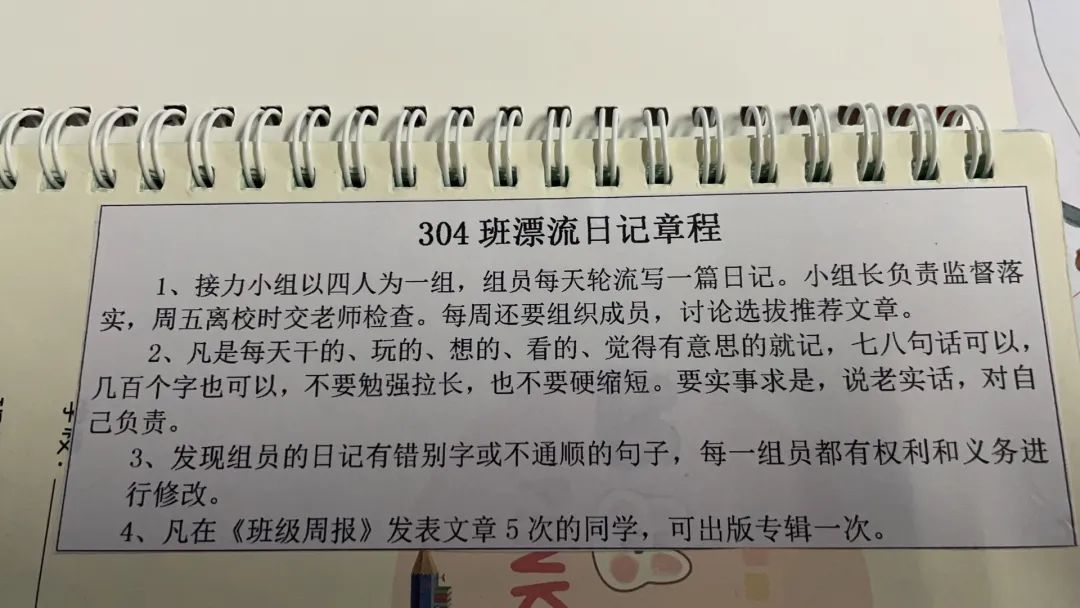 304 班漂流日记章程
1、接力小组以四人为一组，组员每天轮流写一篇日记。小组长负责监督落
实，周五离校时交老师检查。每周还要组织成员，讨论选拔推荐文章。
2、凡是每天干的、玩的、想的、看的、觉得有意思的就记，七八句话可以，
几百个字也可以，不要勉强拉长，也不要硬缩短。要实事求是，说老实话，对自
己负责。
3、发现组员的日记有错别字或不通顺的句子，每一组员都有权利和义务进
行修改。
4、凡在《班级周报》发表文章 5 次的同学，可出版专辑一次。